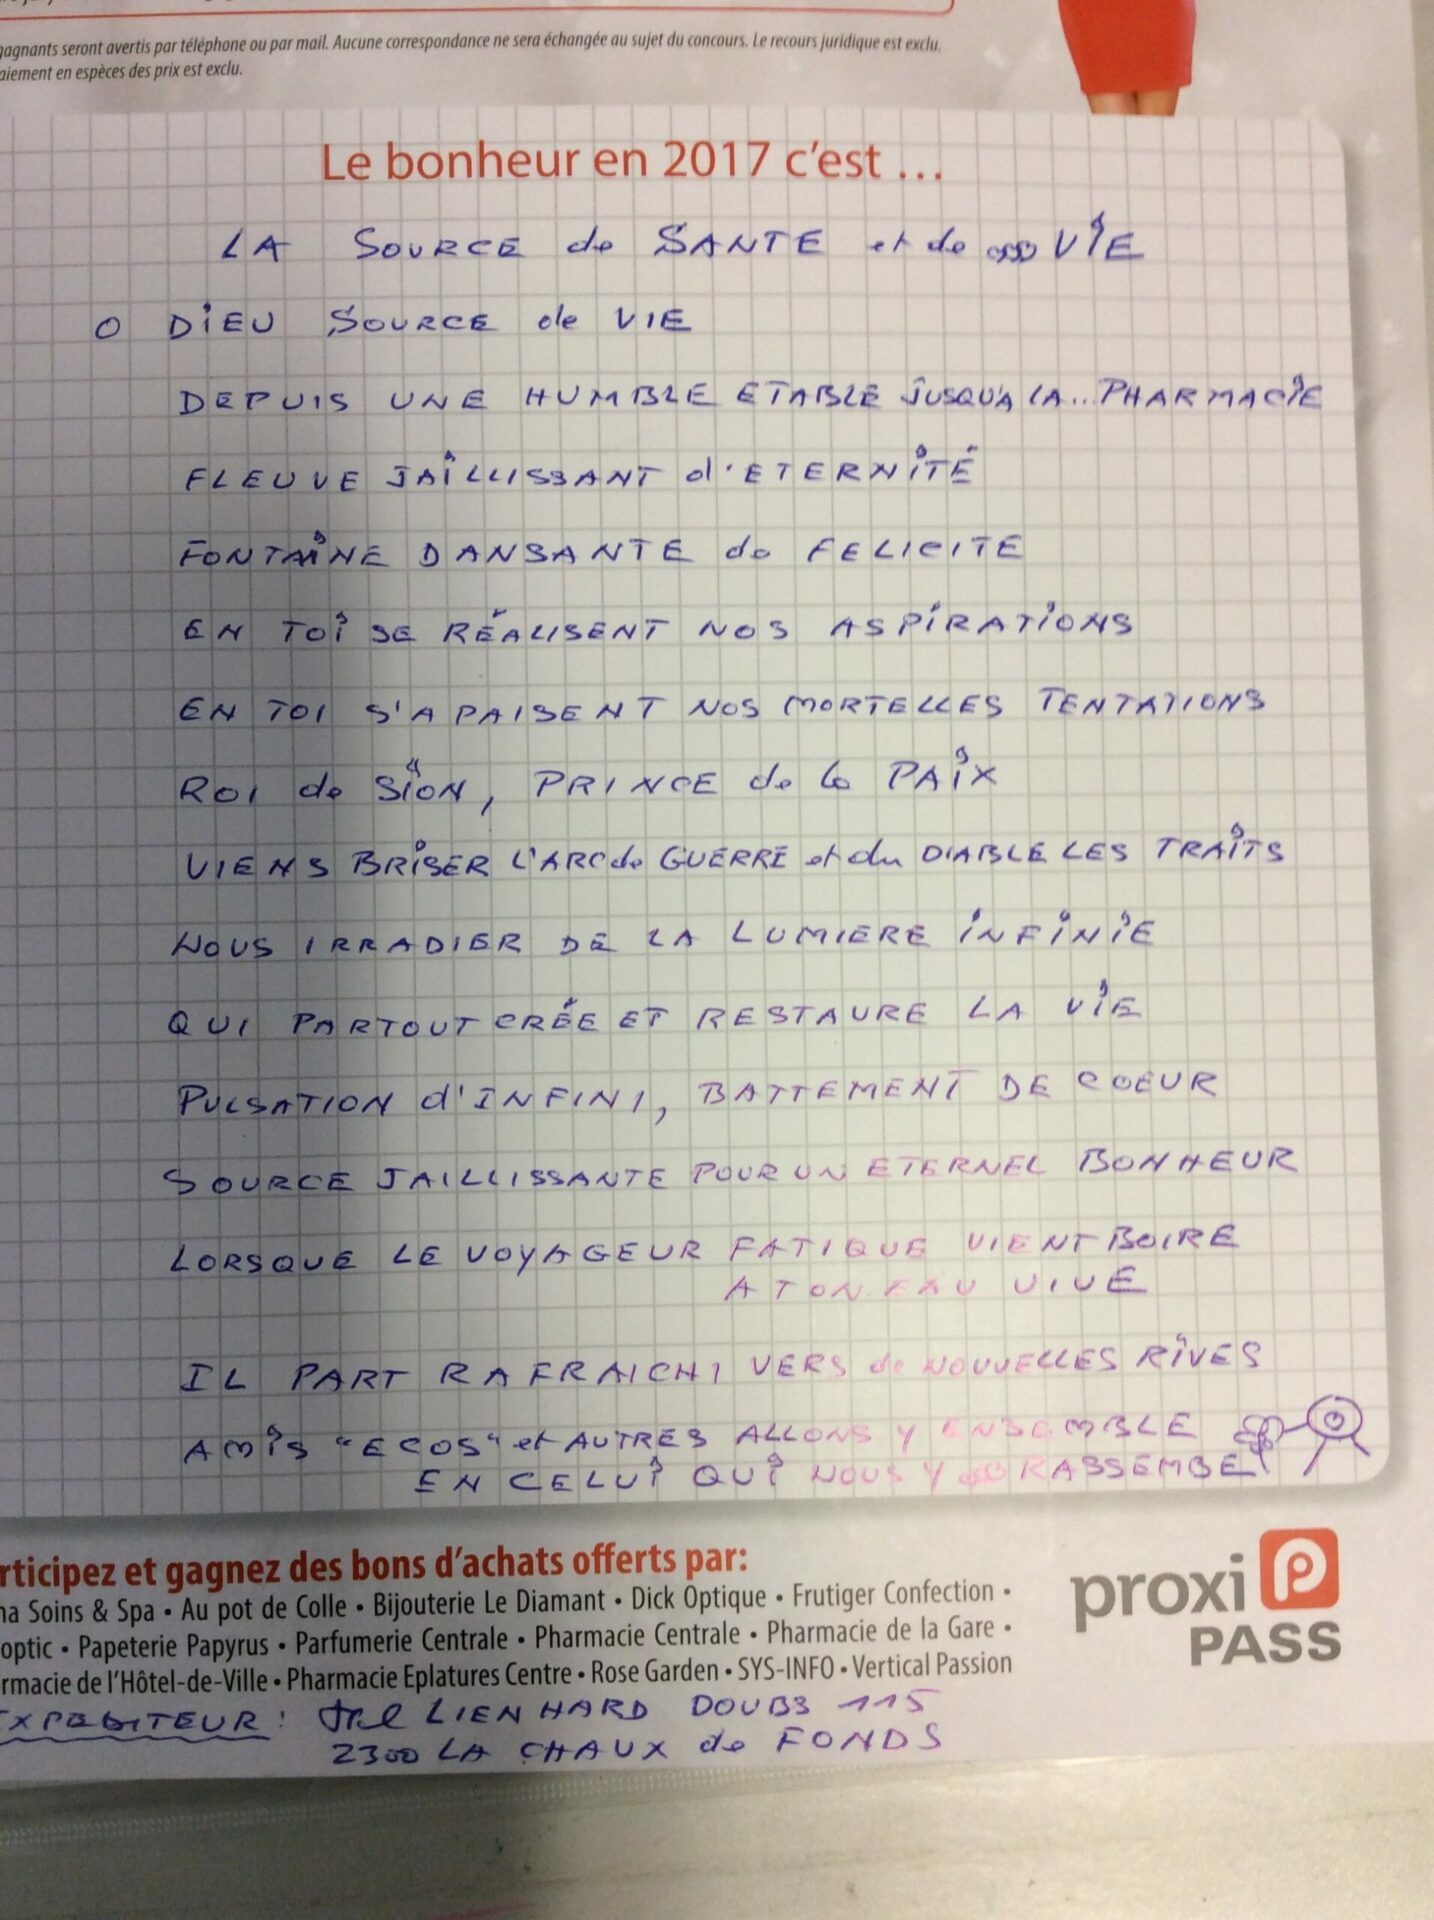 gagnants seront avertis par téléphone ou par mail. Aucune correspondance ne sera échangée au sujet du concours. Le recours juridique est exclu,
aiement en espèces des prix est exclu.
Le bonheur en 2017 c'est ...
LA SOURCE de SANTE et de VIE
O DIEU SOURCE de VIE
DEPUIS UNE HUMBLE ETABLE JUSQU'A LA... PHARMACIE
FLEUVE JAILLISSANT d'ETERNITÉ
FONTAINE DANSANTE de FELICITE
EN TOI SE RÉALISENT NOS ASPIRATIONS
EN TOI S'APAISENT NOS MORTELLES TENTATIONS
ROI de SION, PRINCE de la PAIX
VIENS BRISER L'ARC de GUERRE et du DIABLE LES TRAITS
NOUS IRRADIER DE LA LUMIERE INFINIE
QUI PARTOUT CRÉE ET RESTAURE LA VIE
PULSATION d'INFINI, BATTEMENT DE COEUR
SOURCE JAILLISSANTE POUR UN ETERNEL BONHEUR
LORSQUE LE VOYAGEUR FATIQUE VIENT BOIRE
A TON EAU VIVE
IL PART RAFRAICHI VERS de NOUVELLES RIVES
AMIS "ECOS" et AUTRES ALLONS Y ENSEMBLE
EN CELUI QUI NOUS Y RASSEMBE
rticipez et gagnez des bons d'achats offerts par:
na Soins & Spa • Au pot de Colle • Bijouterie Le Diamant • Dick Optique • Frutiger Confection •
optic • Papeterie Papyrus • Parfumerie Centrale • Pharmacie Centrale • Pharmacie de la Gare •
rmacie de l'Hôtel-de-Ville • Pharmacie Eplatures Centre • Rose Garden • SYS-INFO • Vertical Passion
proxi P
PASS
EXPEDITEUR: LIENHARD DOUBS 115
2300 LA CHAUX de FONDS